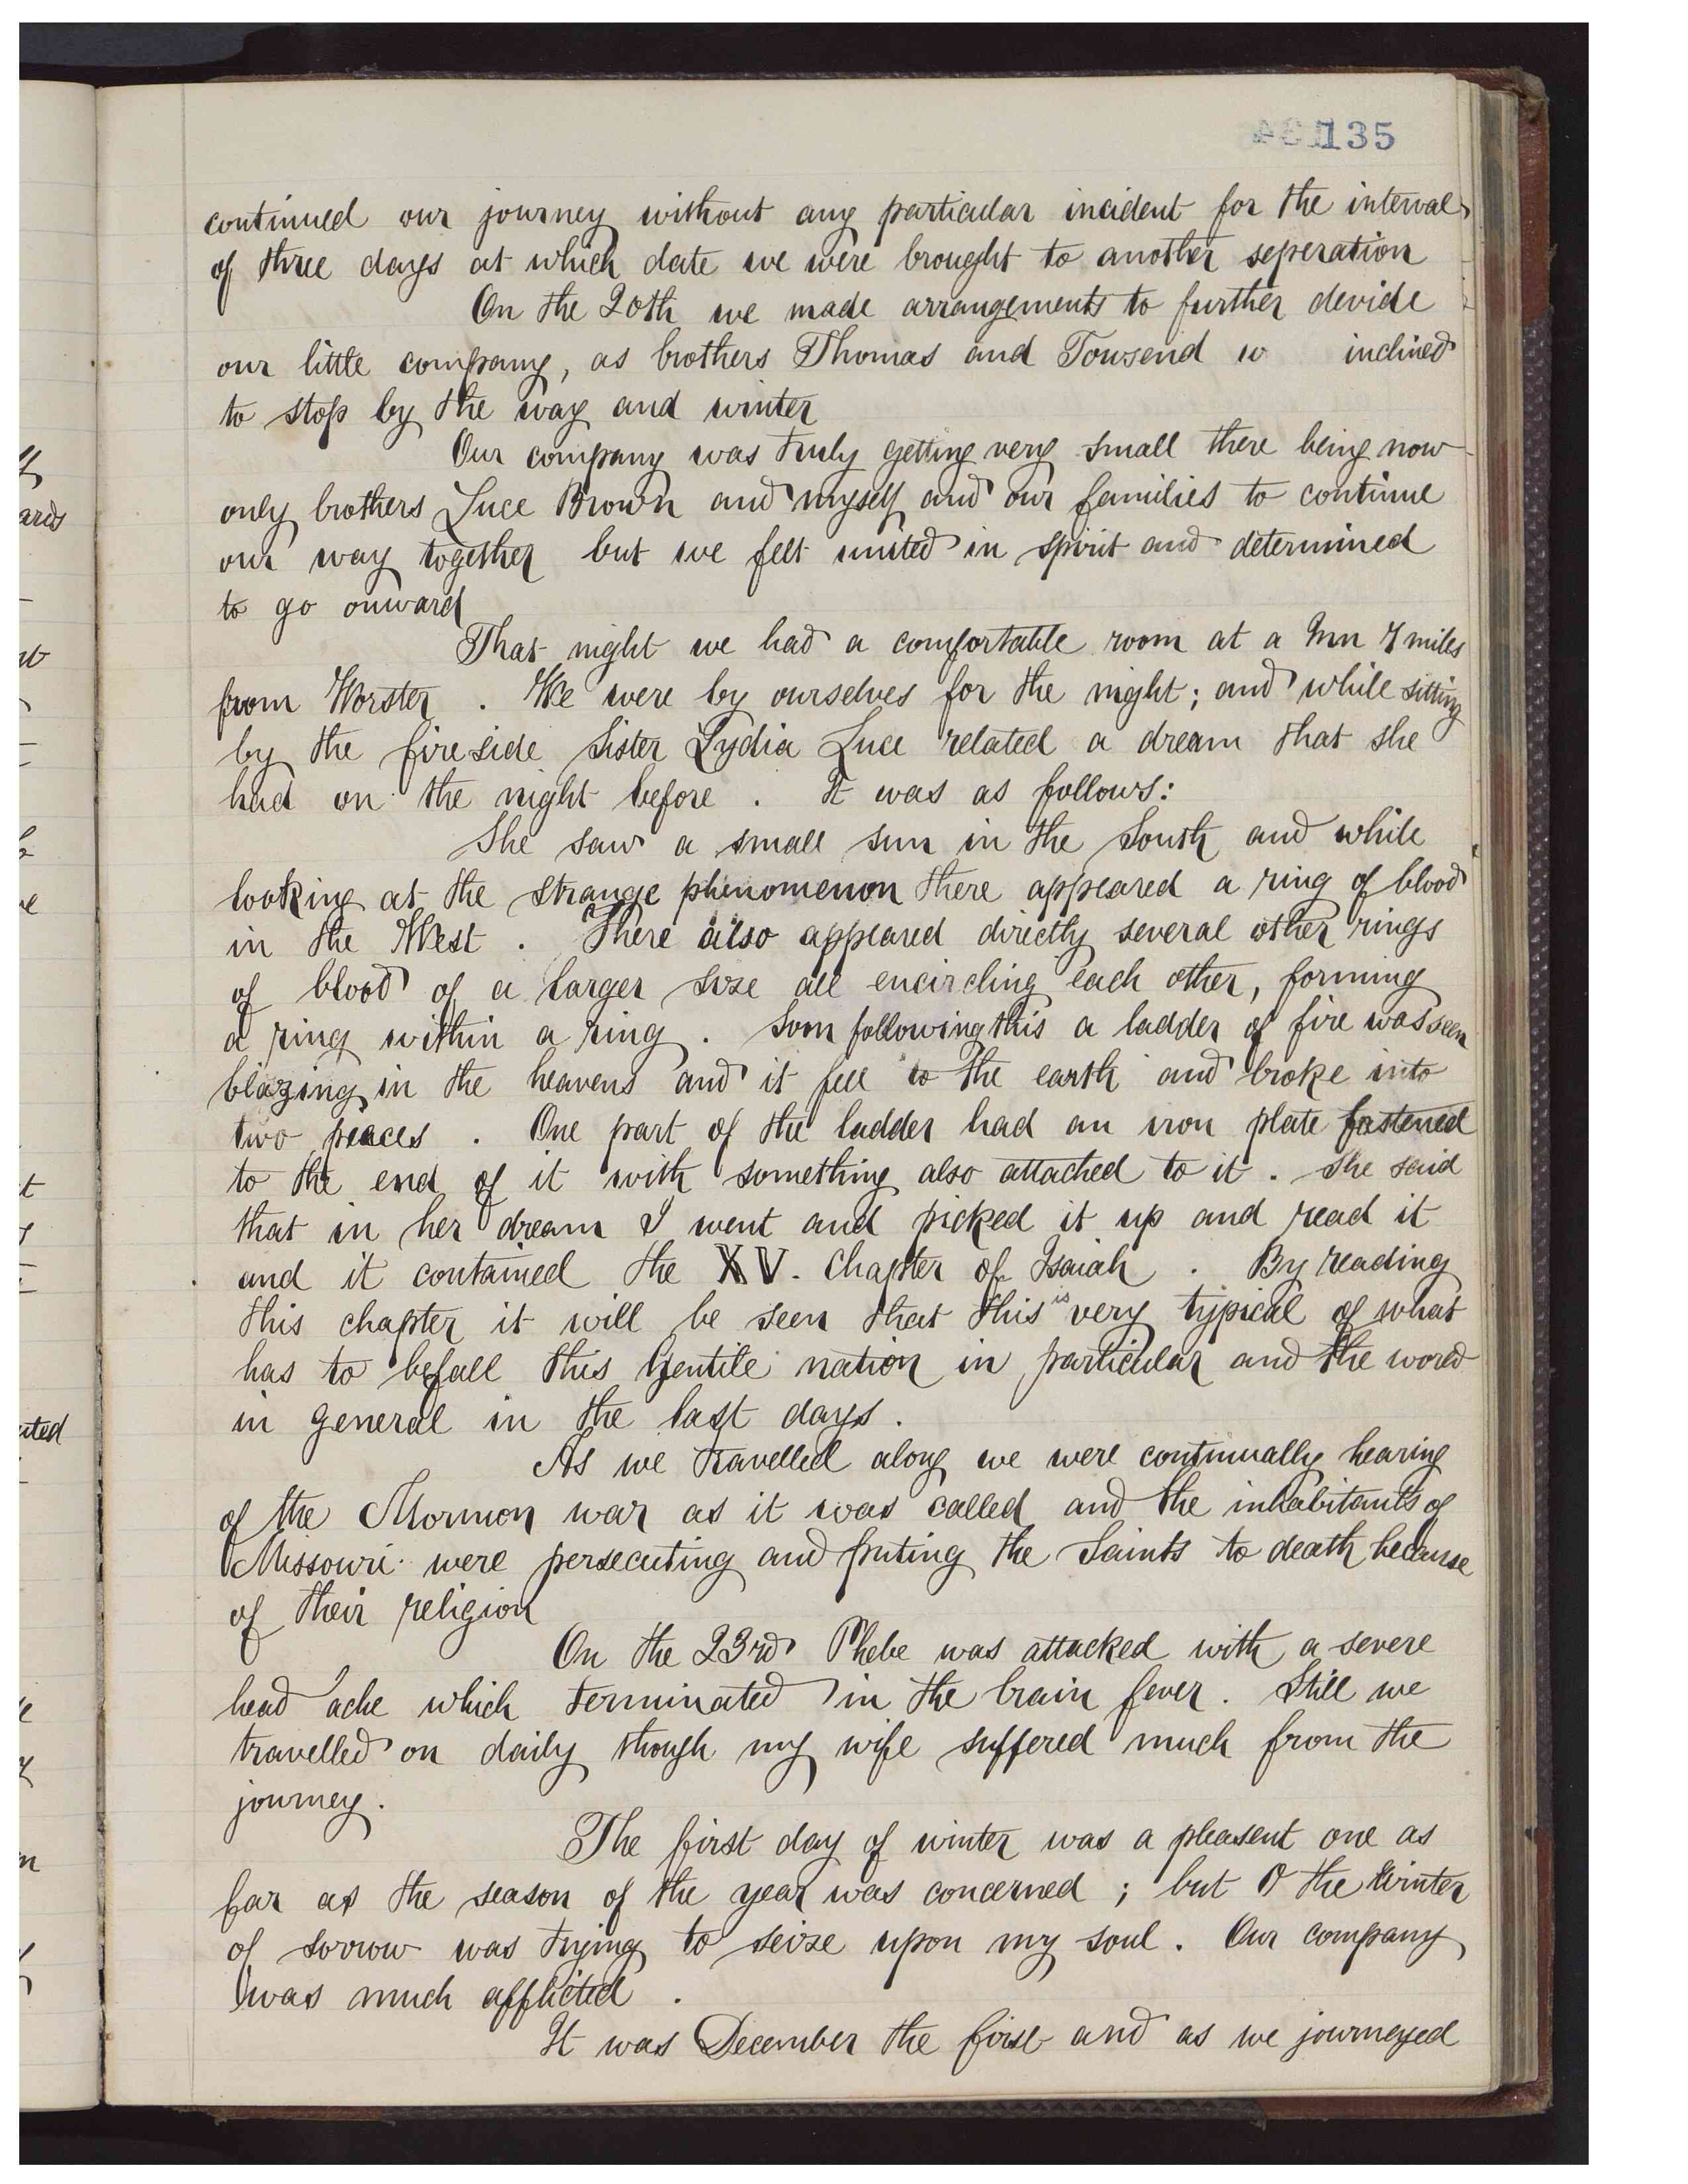 135
continued our journey without any particular incident for the interval
of three days at which date we were brought to another seperation
On the 20th we made arrangements to further devide
our little company, as brothers Thomas and Towsend w inclined
to stop by the way and winter
Our company was truly getting very small there being now
only brothers Luce Brown and myself and our families to continue
our way together but we felt united in spirit and determined
to go onward
That night we had a comfortable room at a Inn 7 miles
from Worster . We were by ourselves for the night; and while sitting
by the fireside Sister Lydia Luce related a dream that she
had on the night before . It was as follows:
She saw a small sun in the South and while
looking at the strange phenomenon there appeared a ring of blood
in the West . There also appeared directly several other rings
of blood of a larger size all encircling each other, forming
a ring within a ring . Soon following this a ladder of fire was seen
blazing in the heavens and it fell to the earth and broke into
two peaces . One part of the ladder had an iron plate fastened
to the end of it with something also attached to it . She said
that in her dream I went and picked it up and read it
and it contained the XV. Chapter of Isaiah . By reading
this chapter it will be seen that this is very typical of what
has to befall this Gentile nation in particular and the world
in general in the last days .
As we travelled along we were continually hearing
of the Mormon war as it was called and the inhabitants of
Missouri were persecuting and puting the Saints to death because
of their religion
On the 23rd Phebe was attacked with a severe
head ache which terminated in the brain fever . Still we
travelled on daily though my wife suffered much from the
journey .
The first day of winter was a pleasent one as
far as the season of the year was concerned ; but O the Winter
of sorrow was trying to seize upon my soul . Our company
was much afflicted .
It was December the first and as we journeyed
ards
uted